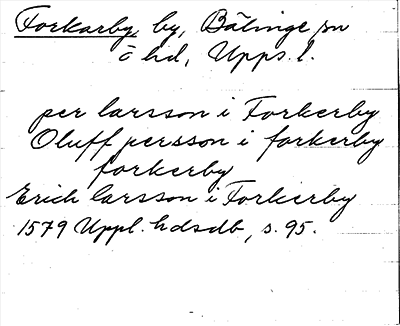 Forkarby, by, Bälinge sn
ö hd, Upps. l.
per larsson i Forkerby
Oluff persson i forkerby
forkerby
Erich larsson i Forkerby
1579 Uppl. hdsdb, s. 95.